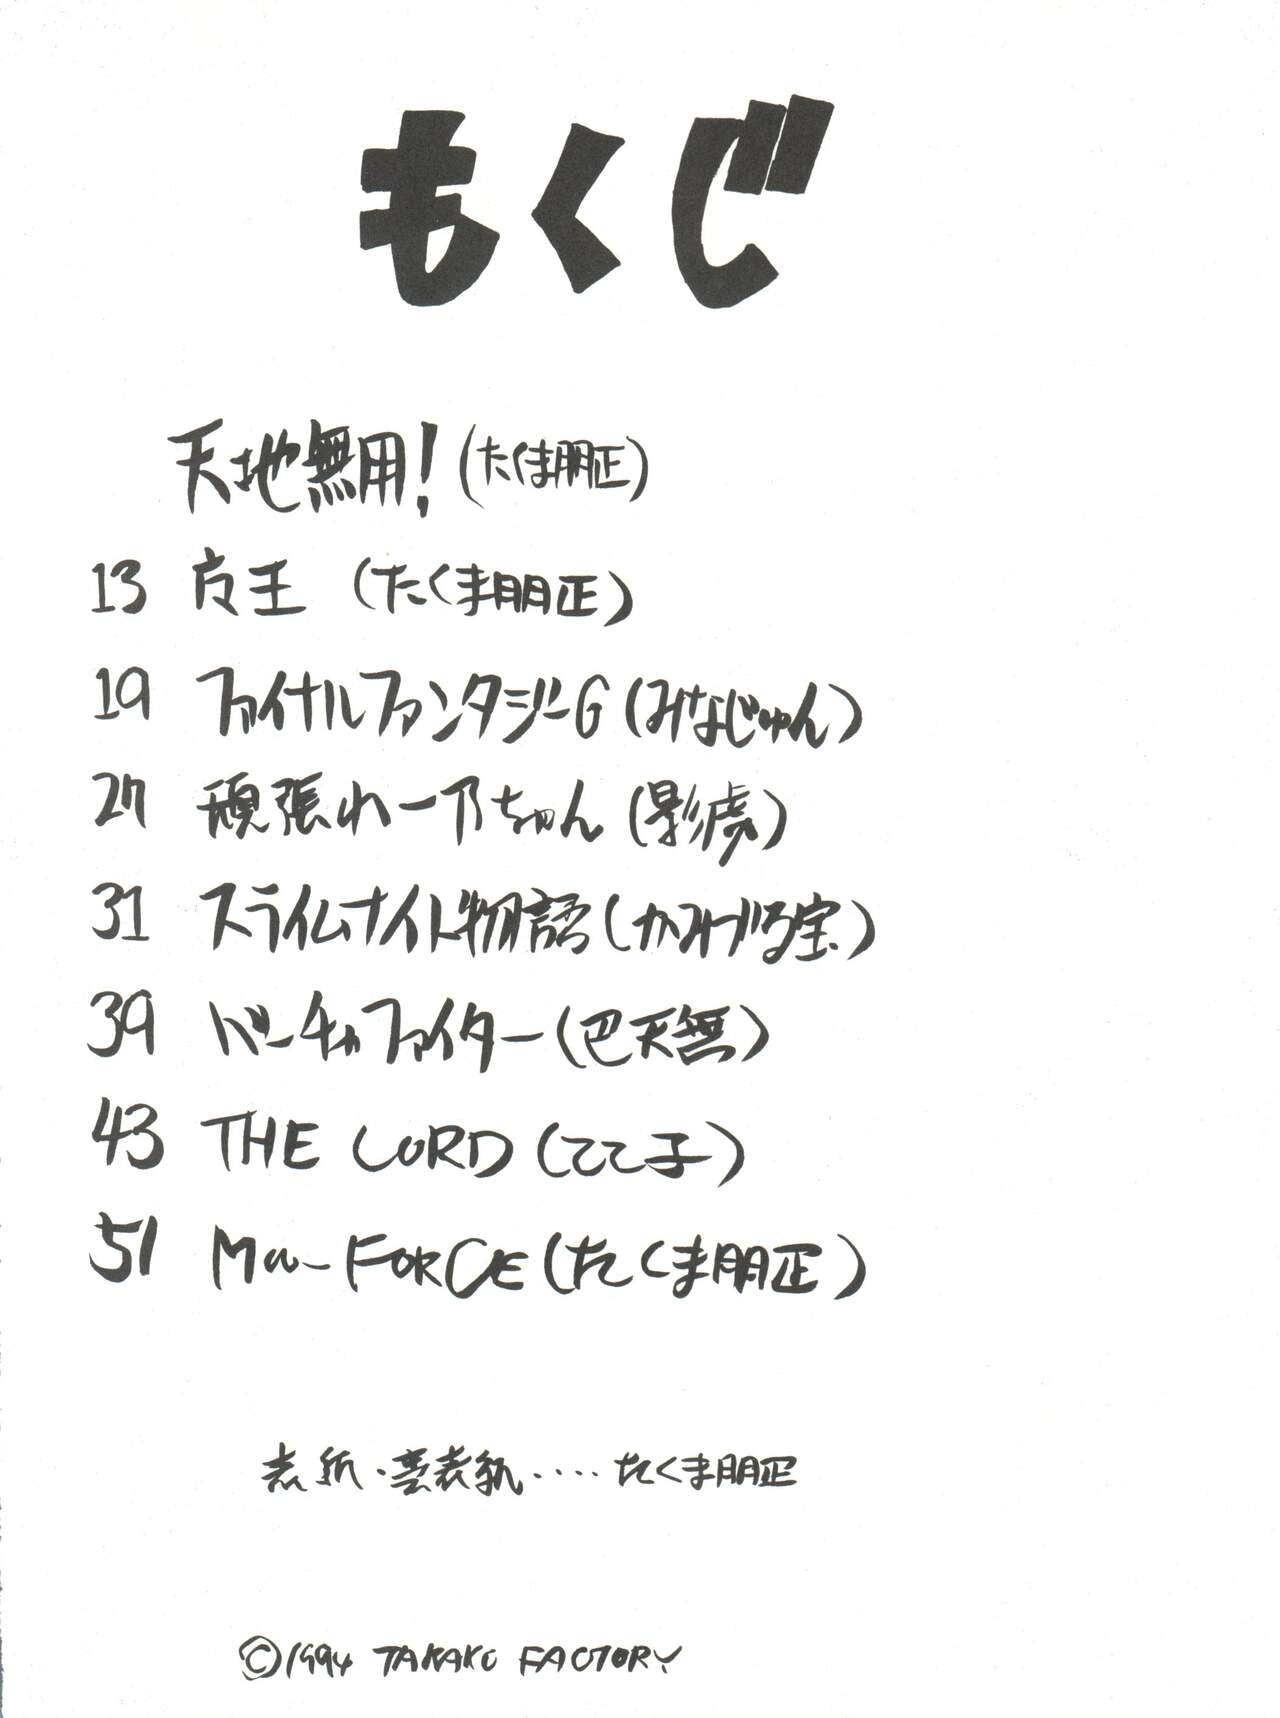 もくじ
天地無用！（たくま朋正）
13 女王（たくま朋正）
19 ファイナルファンタジーG（みなじゅん）
27 頑張れ一乃ちゃん（影虎）
31 スライムナイト物語（かみづる宝）
39 バーチャファイター（巴天無）
43 THE LORD（ててㄗ子）
51 Mu-FORCE（たくま朋正）
表紙・裏表紙‥‥たくま朋正
©1994 TAKAKO FACTORY